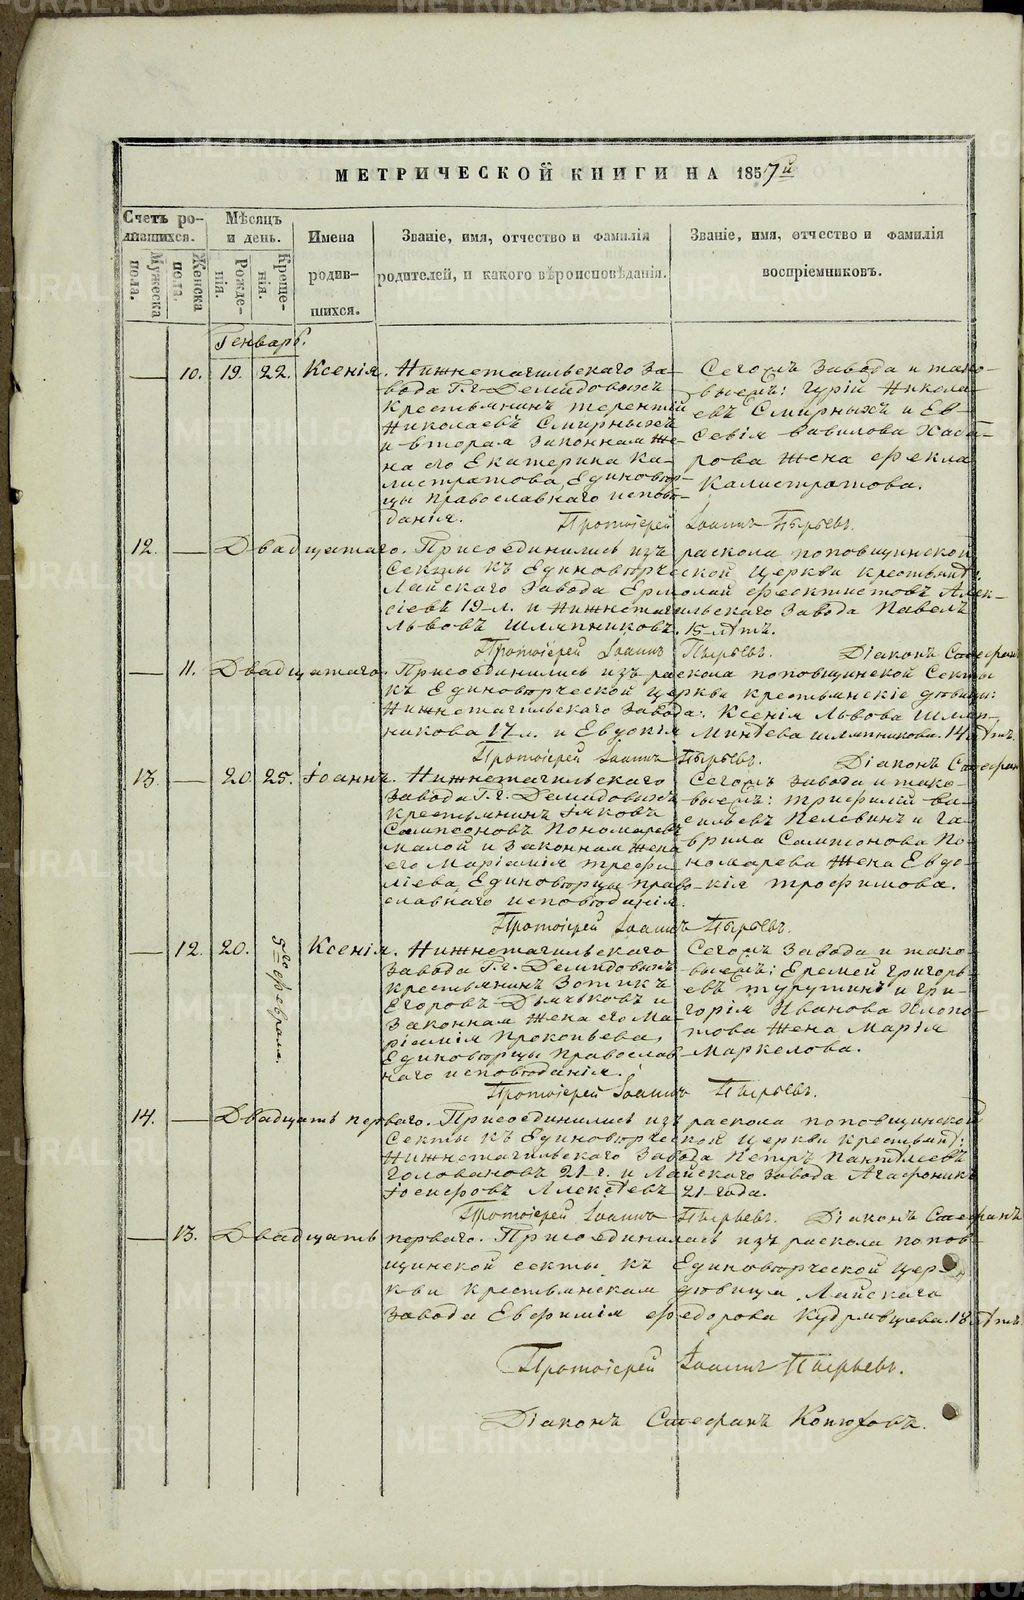 МЕТРИЧЕСКОЙ КНИГИ НА 1857й
Счетъ ро-
дившихся.
Мужеска пола.
Женска пола.
Мѣсяцъ
и день.
Рожде-
нія.
Креще-
нія.
Имена
родив-
шихся.
Званіе, имя, отчество и фамилія
родителей, и какого вѣроисповѣданія.
Званіе, имя, отчество и фамилія
воспріемниковъ.
Генварь.
10. 19. 22. Ксенія.
Нижнетагильскаго За-
вода Г.г. Демидовыхъ
крестьянинъ Терентій
Николаевъ Смирныхъ
и вторая законная же-
на его Екатерина Ка-
листратова, Единовѣр-
цы православнаго исповѣ-
данія.
Сегожъ Завода и тако-
выежъ: Гурій Никола-
евъ Смирныхъ и Ев-
севія Вавилова Хаба-
рова жена Фекла
Калистратова.
Протоіерей Іоаннъ Пырьевъ.
12. Двадцатаго. Присоединились изъ раскола поповщинской
Секты къ Единоверческой Церкви крестьяне:
Лайскаго Завода Ермолай Феоктистовъ Алек-
сѣевъ 19 л. и Нижнетагильскаго Завода Павелъ
Львовъ Шляпниковъ. 15 лѣтъ.
Протоіерей Іоаннъ Пырьевъ. Діаконъ Стефанъ
11. Двадцатаго. Присоединились изъ раскола поповщинской Секты
къ Единоверческой Церкви крестьянскіе девицы:
Нижнетагильскаго Завода: Ксенія Львова Шляп-
никова 17 л. и Евдокія Минѣева Шляпникова. 14 лѣтъ.
Протоіерей Іоаннъ Пырьевъ. Діаконъ Стефанъ
13. 20. 25. Іоаннъ.
Нижнетагильскаго
Завода Г.г. Демидовыхъ
крестьянинъ Іяковъ
Сампсоновъ Пономаревъ
малой и законная жена
его Маріамія Трефи-
ліева, Единовѣрцы право-
славнаго исповѣданія.
Сегожъ Завода и тако-
выежъ: Трифилій Ва-
сильевъ Пелевинъ и Га-
врила Сампсонова По-
номарева жена Евдо-
кія Трофимова.
Протоіерей Іоаннъ Пырьевъ.
12. 20. 5го Февраля. Ксенія.
Нижнетагильскаго
Завода Г.г. Демидовыхъ
крестьянинъ Зотикъ
Егоровъ Дьячьковъ и
законная жена его Ма-
ріамія Прокопьева,
Единовѣрцы православ-
наго исповѣданія.
Сегожъ Завода и тако-
выежъ: Еремей Григорь-
евъ Турутинъ и Гри-
горія Иванова Хлопо-
това жена Марія
Маркелова.
Протоіерей Іоаннъ Пырьевъ.
14. Двадцать перваго. Присоединились изъ раскола поповщинской
Секты къ Единоверческой Церкви крестьяне:
Нижнетагильскаго Завода Петръ Пантелеевъ
Головановъ 21 г. и Лайскаго Завода Агафоникъ
Іосифовъ Алексѣевъ 21 года.
Протоіерей Іоаннъ Пырьевъ. Діаконъ Стефанъ
13. Двадцать перваго. Присоединилась изъ раскола попов-
щинской секты къ Единоверческой Цер-
кви крестьянская девица Лайскаго
Завода Евфимія Федорова Кудрявцева. 18 лѣтъ.
Протоіерей Іоаннъ Пырьевъ.
Діаконъ Стефанъ Конюховъ.